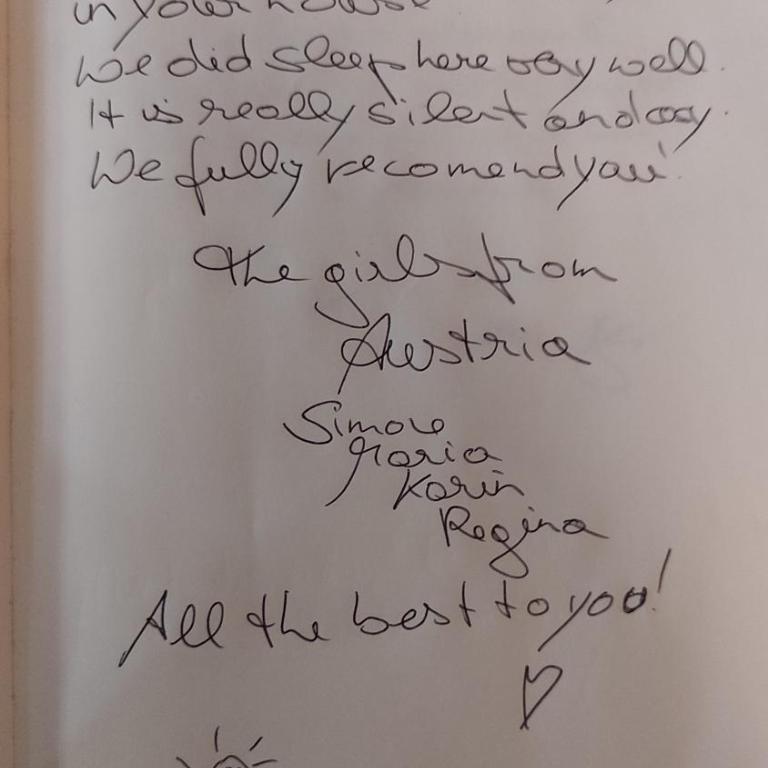 in your house
We did sleep here very well.
It is really silent and cosy.
We fully recomend you!
the girls from
Austria
Simone
Maria
Karin
Regina
All the best to you!